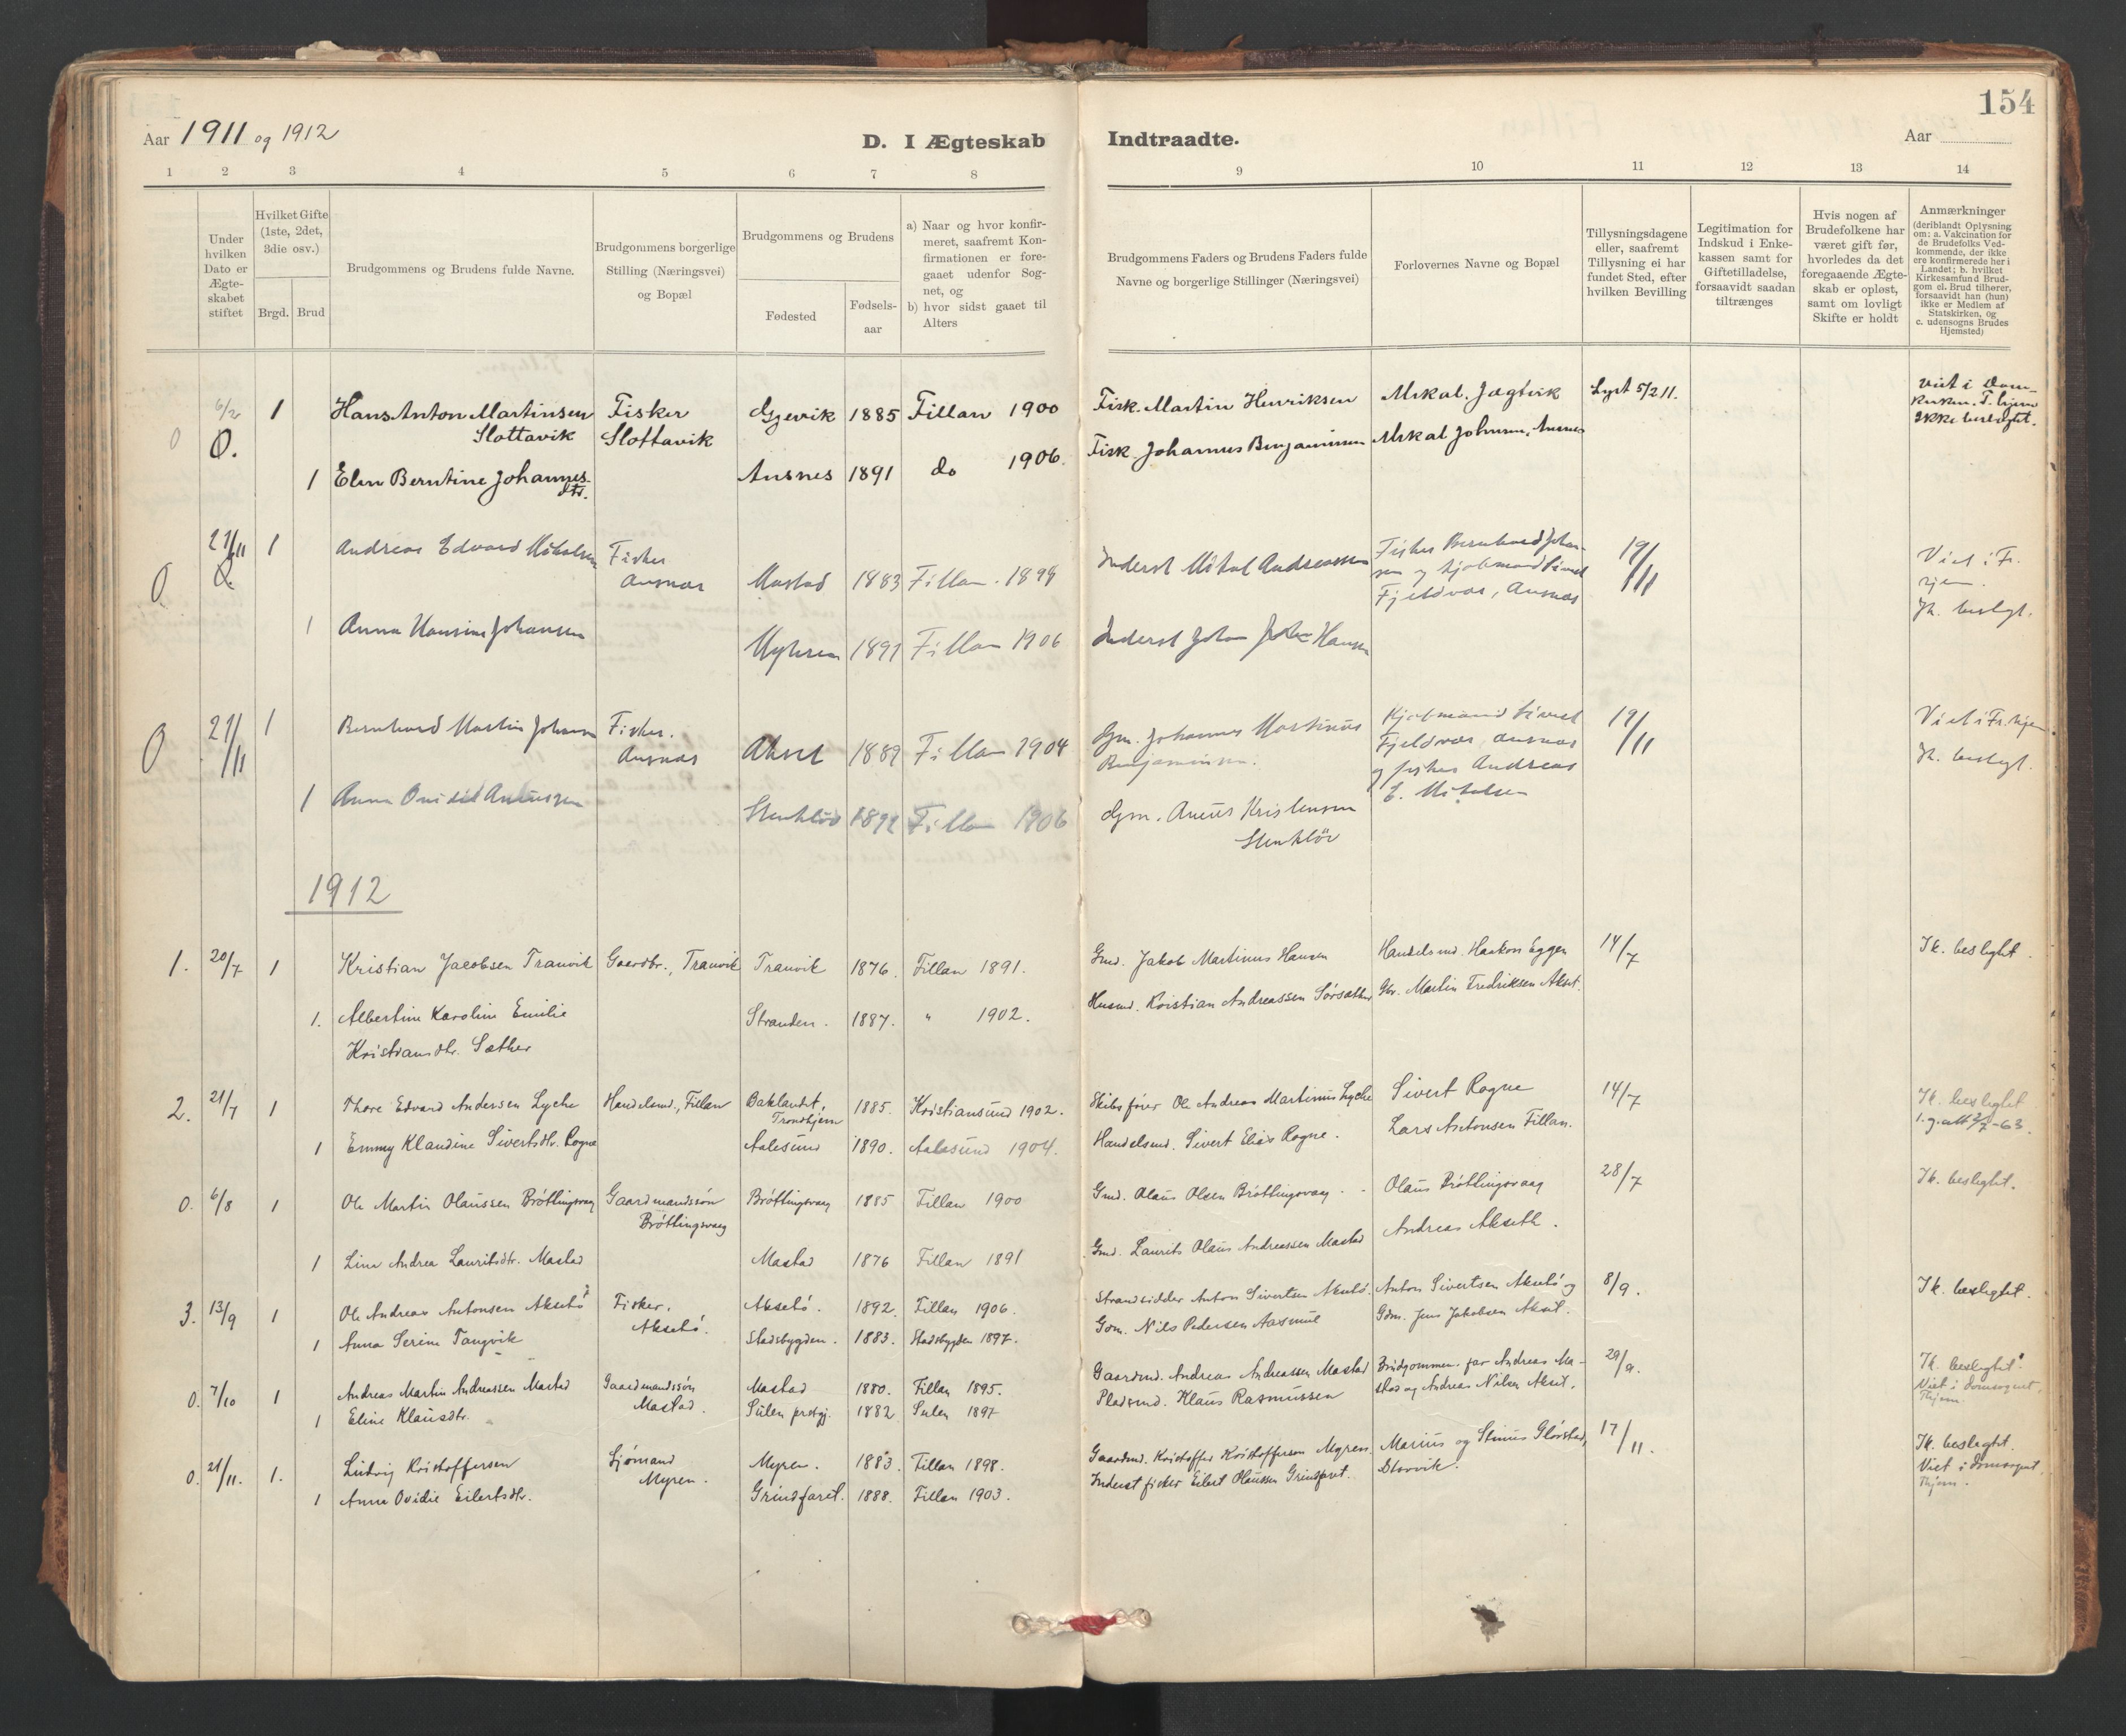 154
Aar 1911 og 1912
D. I Ægteskab Indtraadte.
Aar
1 2 3 4 5 6 7 8 9 10 11 12 13 14
Under hvilken Dato er Ægte-skabet stiftet
Hvilket Gifte (1ste, 2det, 3die osv.)
Brgd. Brud
Brudgommens og Brudens fulde Navne.
Brudgommens borgerlige Stilling (Næringsvei) og Bopæl
Brudgommens og Brudens
Fødested
Fødsels-aar
a) Naar og hvor konfir-
meret, saafremt Kon-
firmationen er fore-
gaaet udenfor Sog-
net, og
b) hvor sidst gaaet til
Alters
Brudgommens Faders og Brudens Faders fulde
Navne og borgerlige Stillinger (Næringsvei)
Forlovernes Navne og Bopæl
Tillysningsdagene
eller, saafremt
Tillysning ei har
fundet Sted, efter
hvilken Bevilling
Legitimation for
Indskud i Enke-
kassen samt for
Giftetilladelse,
forsaavidt saadan
tiltrænges
Hvis nogen af
Brudefolkene har
været gift før,
hvorledes da det
foregaaende Ægte-
skab er opløst,
samt om lovligt
Skifte er holdt
Anmærkninger
(deriblandt Oplysning
om: a. Vakcination for
de Brudefolks Ved-
kommende, der ikke
ere konfirmerede her i
Landet; b. hvilket
Kirkesamfund Brud-
gom el. Brud tilhører,
forsaavidt han (hun)
ikke er Medlem af
Statskirken, og
c. udensogns Brudes
Hjemsted)
0 6/2 1 Hans Anton Martinsen Fisker Gjevik 1885 Fillan 1900 Fisk. Martin Henriksen Mikal. Jægtvik Lyst 5/2 11. Viet i Dom-
0. Slottavik Slottavik
ikke beslægtet.
1 Elen Berntine Johannes- Ansnes 1891 do 1906. Fisk. Johannes Benjaminsen Mikal Johnsen, Ansnes
dtr.
0. 21/11 1 Andreas Edvard Mikalsen Fisker Ansnæs Mastad 1883 Fillan. Inderst Mikal Andreassen Fisker Bernhard Johan-
sen og Kjøbmand Sivert
Fjeldvær, Ansnæs 19/11 Viet i Fr.
hjem.
Ik. beslgt.
1 Anna Hansine Johansen Myhren 1891 Fillan 1906 Inderst Johan Hansen
0 21/11 1 Bernhard Martin Johansen Fisker. Ansnæs Akset 1889 Fillan 1904 Gm. Johannes Martinus
Benjaminsen. Kjøbmand Sivert
Fjeldvær, Ansnæs
og fisker Andreas
E. Mikalsen 19/11 Viet i Fr.hjem
Ik. beslgt.
1 Anna Ovidie Anæussen Stenkløv 1892 Fillan 1906 Gm. Kristensen
Stenkløv
1912
1. 20/7 1 Kristian Jacobsen Tranvik Gaardbr., Tranvik Tranvik 1876. Fillan 1891. Gmd. Jakob Martinus Hansen Handelsmd. Haakon Eggen 14/7 Ik. beslegtet.
1. Albertine Karoline Emilie Stranden. 1887. " 1902. Husmd. Kristian Andreassen Sørsæther Gbr. Martin Fredriksen Akset.
Kristiansdtr. Sæther
2. 21/7 1 Thore Edvard Andersen Lyche Handelsmd., Fillan Baklandet,
Trondhjem 1885. Kristiansund 1902. Skibsfører Ole Andreas Martinus Lyche Sivert Rogne 14/7 Ik. beslegtet
1 Emmy Klaudine Sivertsdtr. Rogne Aalesund 1890. Aalesund 1904. Handelsmd. Sivert Elias Rogne. Lars Antonsen Fillan.
0. 6/8 1 Ole Martin Olaussen Bröttingsvaag Gaardmandssön
Bröttingsvaag Bröttingsvaag 1885 Fillan 1900 Gmd. Olaus Olsen Bröttingsvaag. Olaus Bröttingsvaag 28/7 Ik. beslegtet.
1 Lina Andrea Lauritsdtr. Mastad Mastad 1876 Fillan 1891 Gmd. Laurits Olaus Andreassen Mastad Andreas Akseth.
3. 13/9 1 Ole Andreas Antonsen Aksetö Fisker.
Aksetö. Aksetö. 1892. Fillan 1906. Strandsidder Anton Sivertsen Aksetö. Anton Sivertsen Aksetö og 8/9. Ik. beslegtet.
1 Anna Serine Tangvik Stadsbygden. 1883. Stadsbygden 1897. Gdm. Nils Pedersen Aasmul Gdm. Jens Jakobsen Akset.
0. 7/10 1 Andreas Martin Andreassen Mastad Gaardmandssön
Mastad. Mastad 1880. Fillan 1895. Gaardmd. Andreas Andreassen Mastad Brudgommens far Andreas Ma-
stad og Andreas Nilsen Akset. 29/9. Ik. beslegtet.
Viet i Domsognet,
Thjem.
1 Eline Klausdtr. Sulen prstgj. 1882 Sulen 1897 Pladsmd. Klaus Rasmussen
0. 21/11. 1. Ludvig Kristoffersen Sjömand
Myren. Myren. 1883. Fillan 1898. Gaardmd. Kristoffer Kristoffersen Myren. Marius og Stinus Glörstad,
Storvik. 17/11. Ik. beslegtet.
Viet i Domsognet,
Thjem.
1 Anna Ovidie Eilertsdtr. Grindfaret. 1888. Fillan 1903. Inderst fisker Eilert Olaussen Grindfaret.